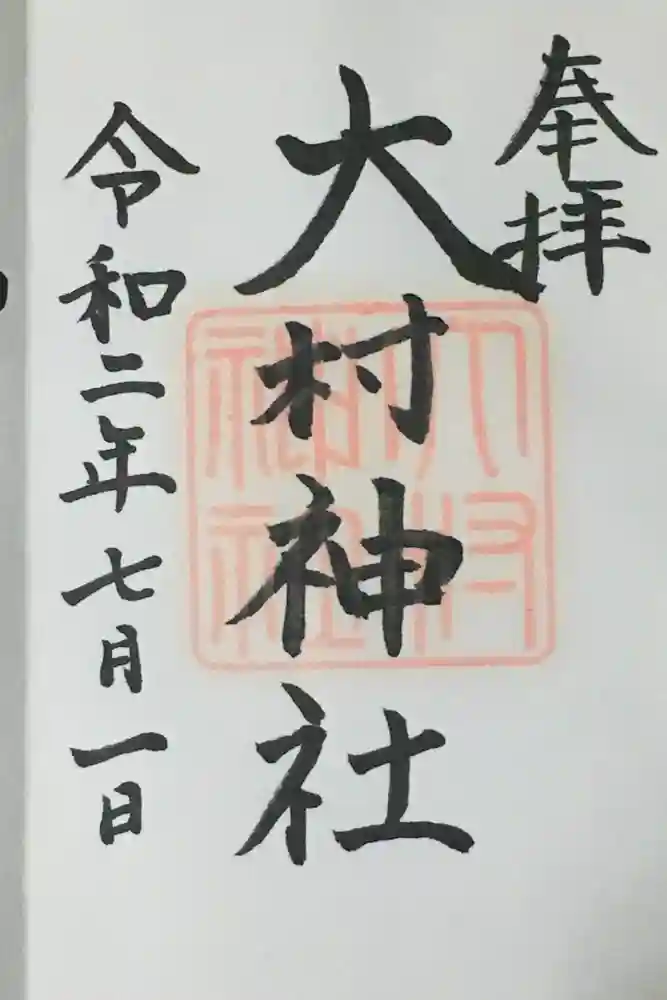 奉拝
大村神社
令和二年七月一日
大村
神社